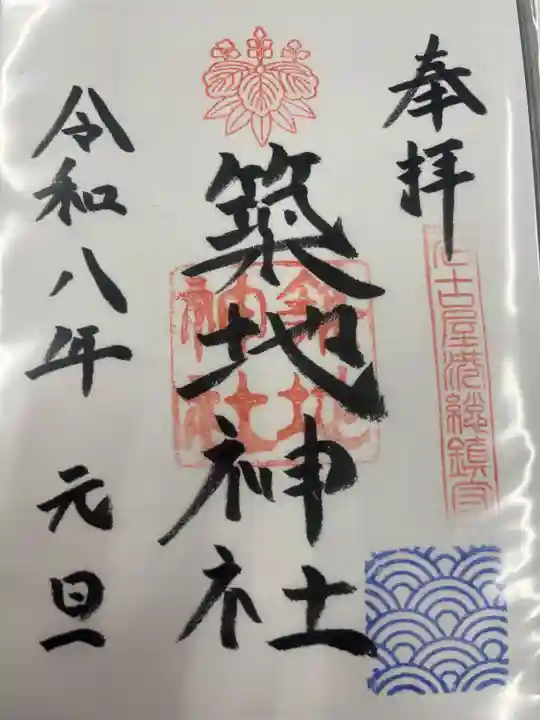 奉拝
名古屋港総鎮守
築地神社
築地
神社
令和八年 元旦